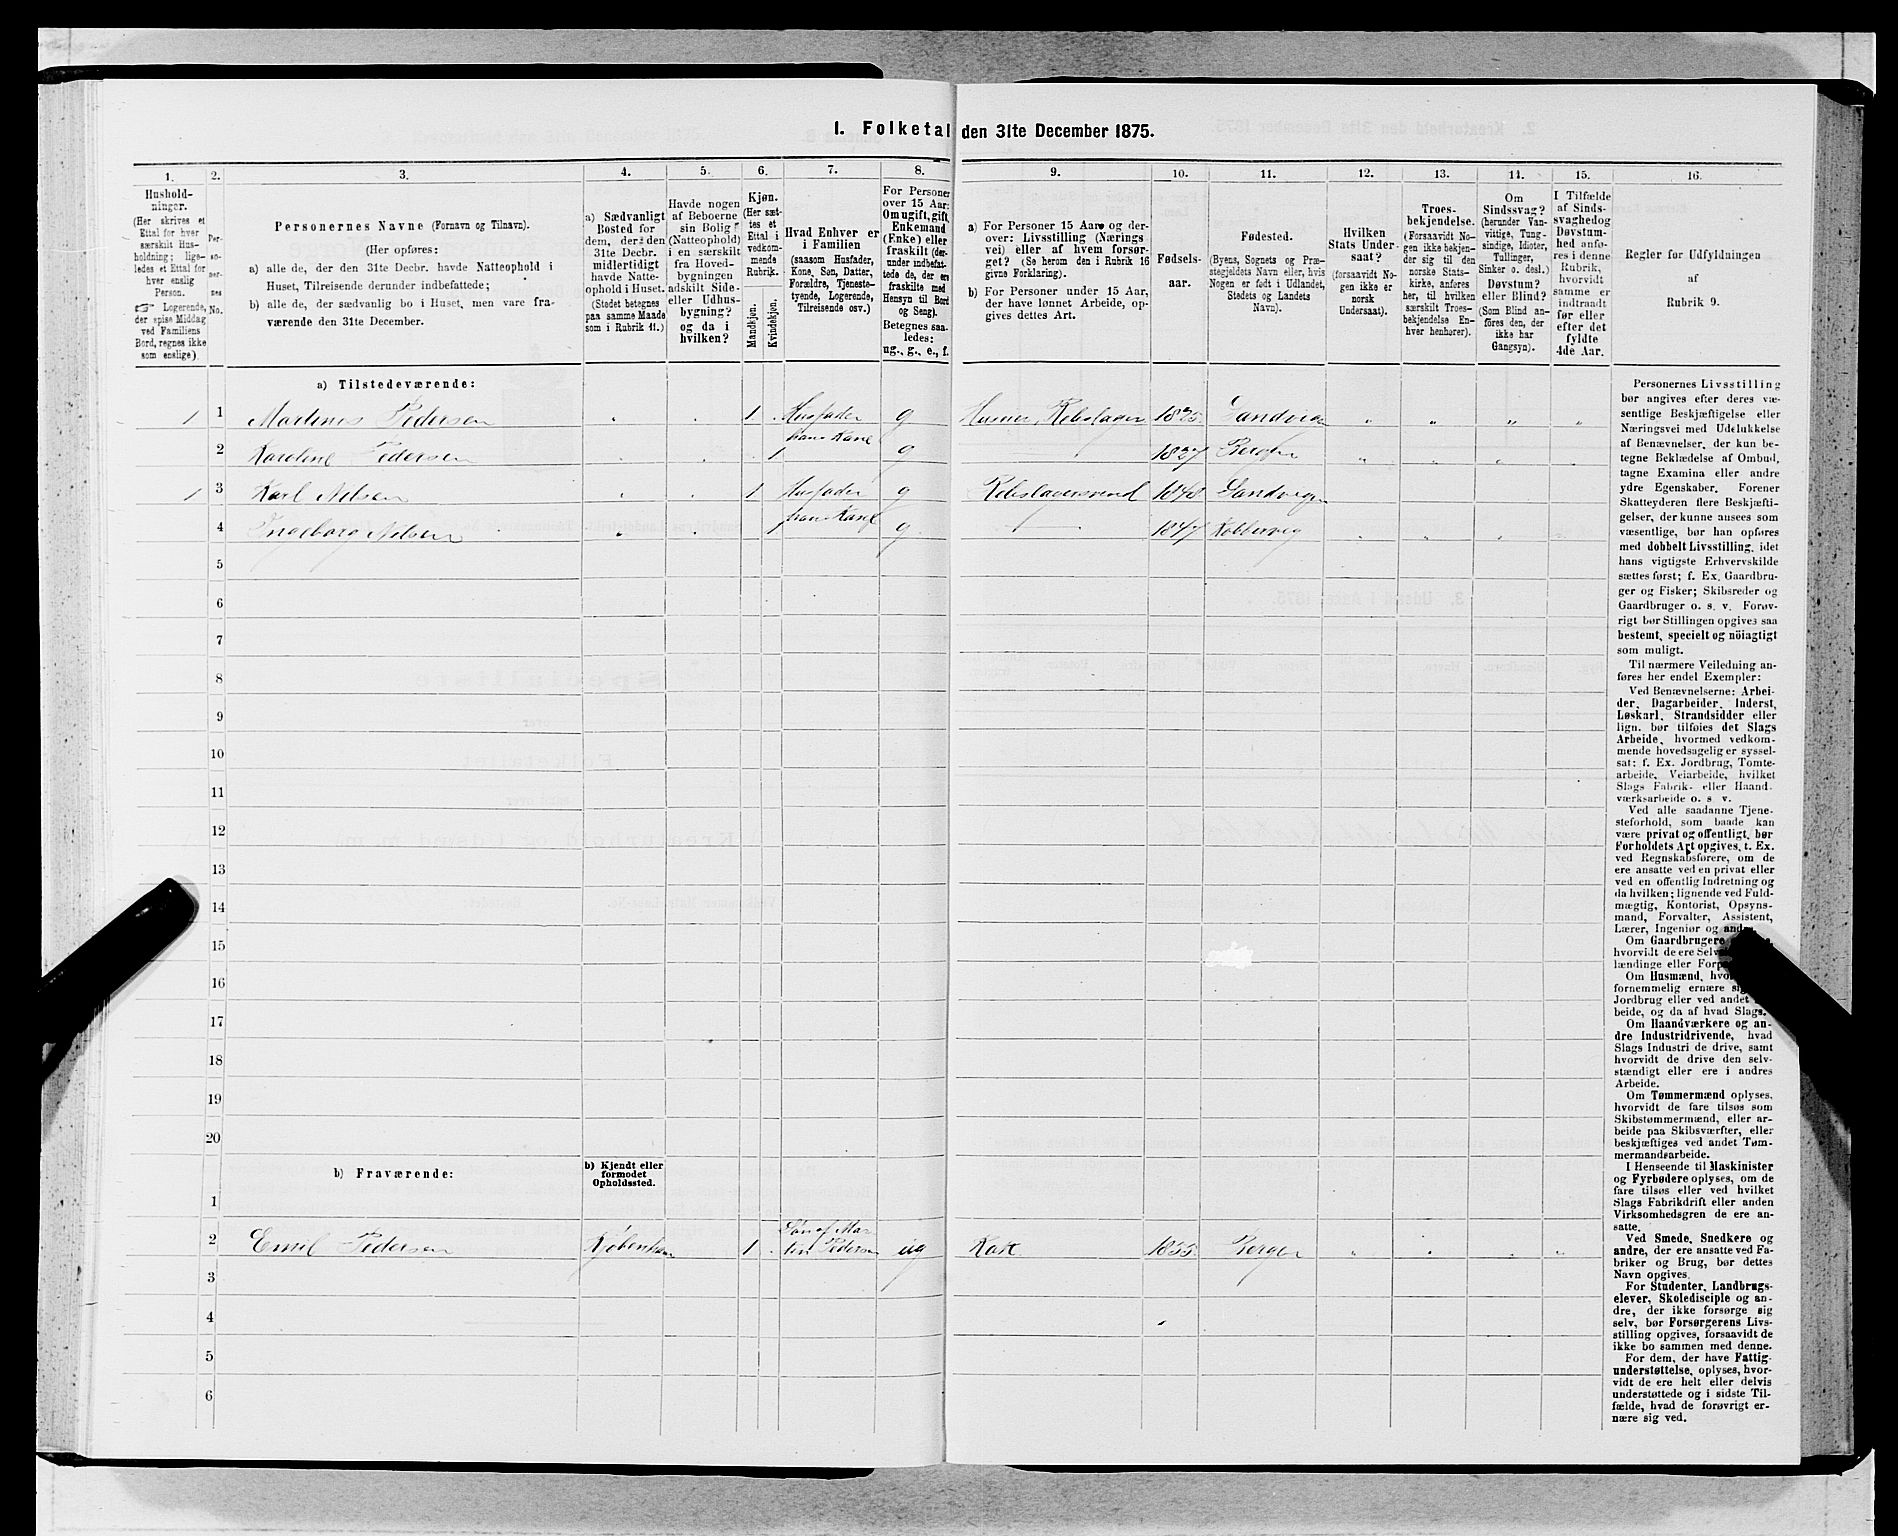 1. Folketal den 31te December 1875.
1. 2. 3. 4. 5. 6. 7. 8. 9. 10. 11. 12. 13. 14. 15. 16.
Hushold-
ninger.
(Her skrives et
Ettal for hver
særskilt Hus-
holdning; lige-
ledes et Ettal for
hver enslig
Person.
☞ Logerende,
der spise Middag
ved Familiens
Bord, regnes ikke
som enslige)
Per-
so-
ner-
nes
No.
Personernes Navne (Fornavn og Tilnavn).
(Her opføres:
a) alle de, der den 31te Decbr. havde Natteophold i
Huset, Tilreisende derunder indbefattede;
b) alle de, der sædvanlig bo i Huset, men vare fra-
værende den 31te December.
a) Sædvanligt
Bosted for
dem, der den
31te Decbr.
midlertidigt
havde Natte-
ophold i Huset.
(Stedet betegnes
paa samme Maade
som i Rubrik 11.)
Havde nogen
af Beboerne
sin Bolig
(Natteophold)
i en særskilt
fra Hoved-
bygningen
adskilt Side-
eller Udhus-
bygning?
og da i
hvilken?
Kjøn.
(Her sæt-
tes et
Ettal i
vedkom-
mende
Rubrik.
Mandkjøn.
Kvindekjøn.
Hvad Enhver er
i Familien
(saasom Husfader,
Kone, Søn, Datter,
Forældre, Tjeneste-
tyende, Logerende,
Tilreisende osv.)
For Personer
over 15 Aar:
Om ugift, gift,
Enkemand
(Enke) eller
fraskilt (der-
under indbefat-
tede de, der ere
fraskilte med
Hensyn til Bord
og Seng).
Betegnes saa-
ledes:
ug., g., e., f.
a) For Personer 15 Aar og der-
over: Livsstilling (Nærings
vei) eller af hvem forsør-
get? (Se herom den i Rubrik 16
givne Forklaring).
b) For Personer under 15 Aar,
der have lønnet Arbeide, op-
gives dettes Art.
Fødsels-
aar.
Fødested.
(Byens, Sognets og Præ-
stegjeldets Navn eller, hvis
Nogen er født i Udlandet,
Stedets og Landets
Navn).
Hvilken
Stats Under-
saat?
(forsaavidt No-
gen ikke er
norsk
Undersaat).
Troes-
bekjendelse.
(Forsaavidt No-
gen ikke bekjen-
der sig til den
norske Stats-
kirke, anføres
her, til hvilken
særskilt Troes-
bekjendelse En-
hver henhører).
Om
Sindssvag?
(herunder Van-
vittige, Tung-
sindige, Idioter,
Tullinger,
Sinker o. desl.)
Døvstum?
eller Blind?
(Som Blind an-
føres den, der
ikke har
Gangsyn).
I Tilfælde
af Sinds-
svaghed og
Døvstum-
hed anfø-
res i denne
Rubrik,
hvorvidt
samme er
indtraadt
før eller
efter det
fyldte
4de Aar.
Regler for Udfyldningen
af
Rubrik 9.
a) Tilstedeværende:
1 1 Martinus Pedersen 1 Husfader g Huseier, Rebslager 1825 Sandvigen
2 Karoline Pedersen 1 hans Kone g 1827 Bergen
1 3 Karl Nilsen 1 Husfader g Rebslagersvend 1848 Sandvigen
4 Ingeborg Nilsen 1 hans Kone g 1847 Kobbervig
5
6
7
8
9
10
11
12
13
14
15
16
17
18
19
20
b) Fraværende:
b) Kjendt eller
formodet
Opholdssted.
1
2 Emil Pedersen Kjøbenhavn 1 Søn af Mar-
tin Pedersen ug Kok 1855 Bergen
3
4
5
6
Personernes Livsstilling
bør angives efter deres væ-
sentlige Beskjæftigelse eller
Næringsvei med Udelukkelse
af Benævnelser, der kun be-
tegne Beklædelse af Ombud,
tagne Examina eller andre
ydre Egenskaber. Forener
Skatteyderen flere Beskjæfti-
gelser, der kunne ansees som
væsentlige, bør han opføres
med dobbelt Livsstilling, idet
hans vigtigste Erhvervskilde
sættes først; f. Ex. Gaardbru-
ger og Fisker; Skibsreder og
Gaardbruger o. s. v. Forøv-
rigt bør Stillingen opgives saa
bestemt, specielt og nöiagtigt
som muligt.
Til nærmere Veiledning an-
føres her endel Exempler:
Ved Benævnelserne: Arbei-
der, Dagarbeider, Inderst,
Løskarl, Strandsidder eller
lign. bør tilføies det Slags
Arbeide, hvormed vedkom-
mende hovedsagelig er syssel-
sat; f. Ex. Jordbrug, Tomte-
arbeide, Veiarbeide, hvilket
Slags Fabrik- eller Haand-
værksarbeide o. s. v.
Ved alle saadanne Tjene-
steforhold, som baade kan
være privat og offentligt, bør
Forholdets Art opgives, t. Ex.
ved Regnskabsførere, om de
ere ansatte ved en privat eller
ved en offentlig Indretning og
da hvilken; lignende ved Fuld-
mægtig, Kontorist, Opsyns-
mand, Forvalter, Assistent,
Lærer, Ingeniør og andre.
Om Gaardbrugere
hvorvidt de ere Selv
lændinge eller Forp
Om Husmænd, hvo
fornemmelig ernære sig
Jordbrug eller ved andet
beide, og da af hvad Slags.
Om Haandværkere og an-
dre Industridrivende, hvad
Slags Industri de drive, samt
hvorvidt de drive den selv-
stændigt eller ere i andres
Arbeide.
Om Tømmermænd oplyses,
hvorvidt de fare tilsøs som
Skibstømmermænd, eller ar-
beide paa Skibsværfter, eller
beskjæftiges ved andet Tøm-
mermandsarbeide.
I Henseende til Maskinister
og Fyrbødere oplyses, om de
fare tilsøs eller ved hvilket
Slags Fabrikdrift eller anden
Virksomhedsgren de ere an-
satte.
Ved Smede, Snedkere og
andre, der ere ansatte ved Fa-
briker og Brug, bør dettes
Navn opgives.
For Studenter, Landbrugs-
elever, Skoledisciple og an-
dre, der ikke forsørge sig
selv, bør Forsørgerens Livs-
stilling opgives, forsaavidt de
ikke bo sammen med denne.
For dem, der have Fattig-
understøttelse, oplyses, hvor-
vidt de ere helt eller delvis
understøttede og i sidste Til-
fælde, hvad de forøvrigt er-
nære sig ved.